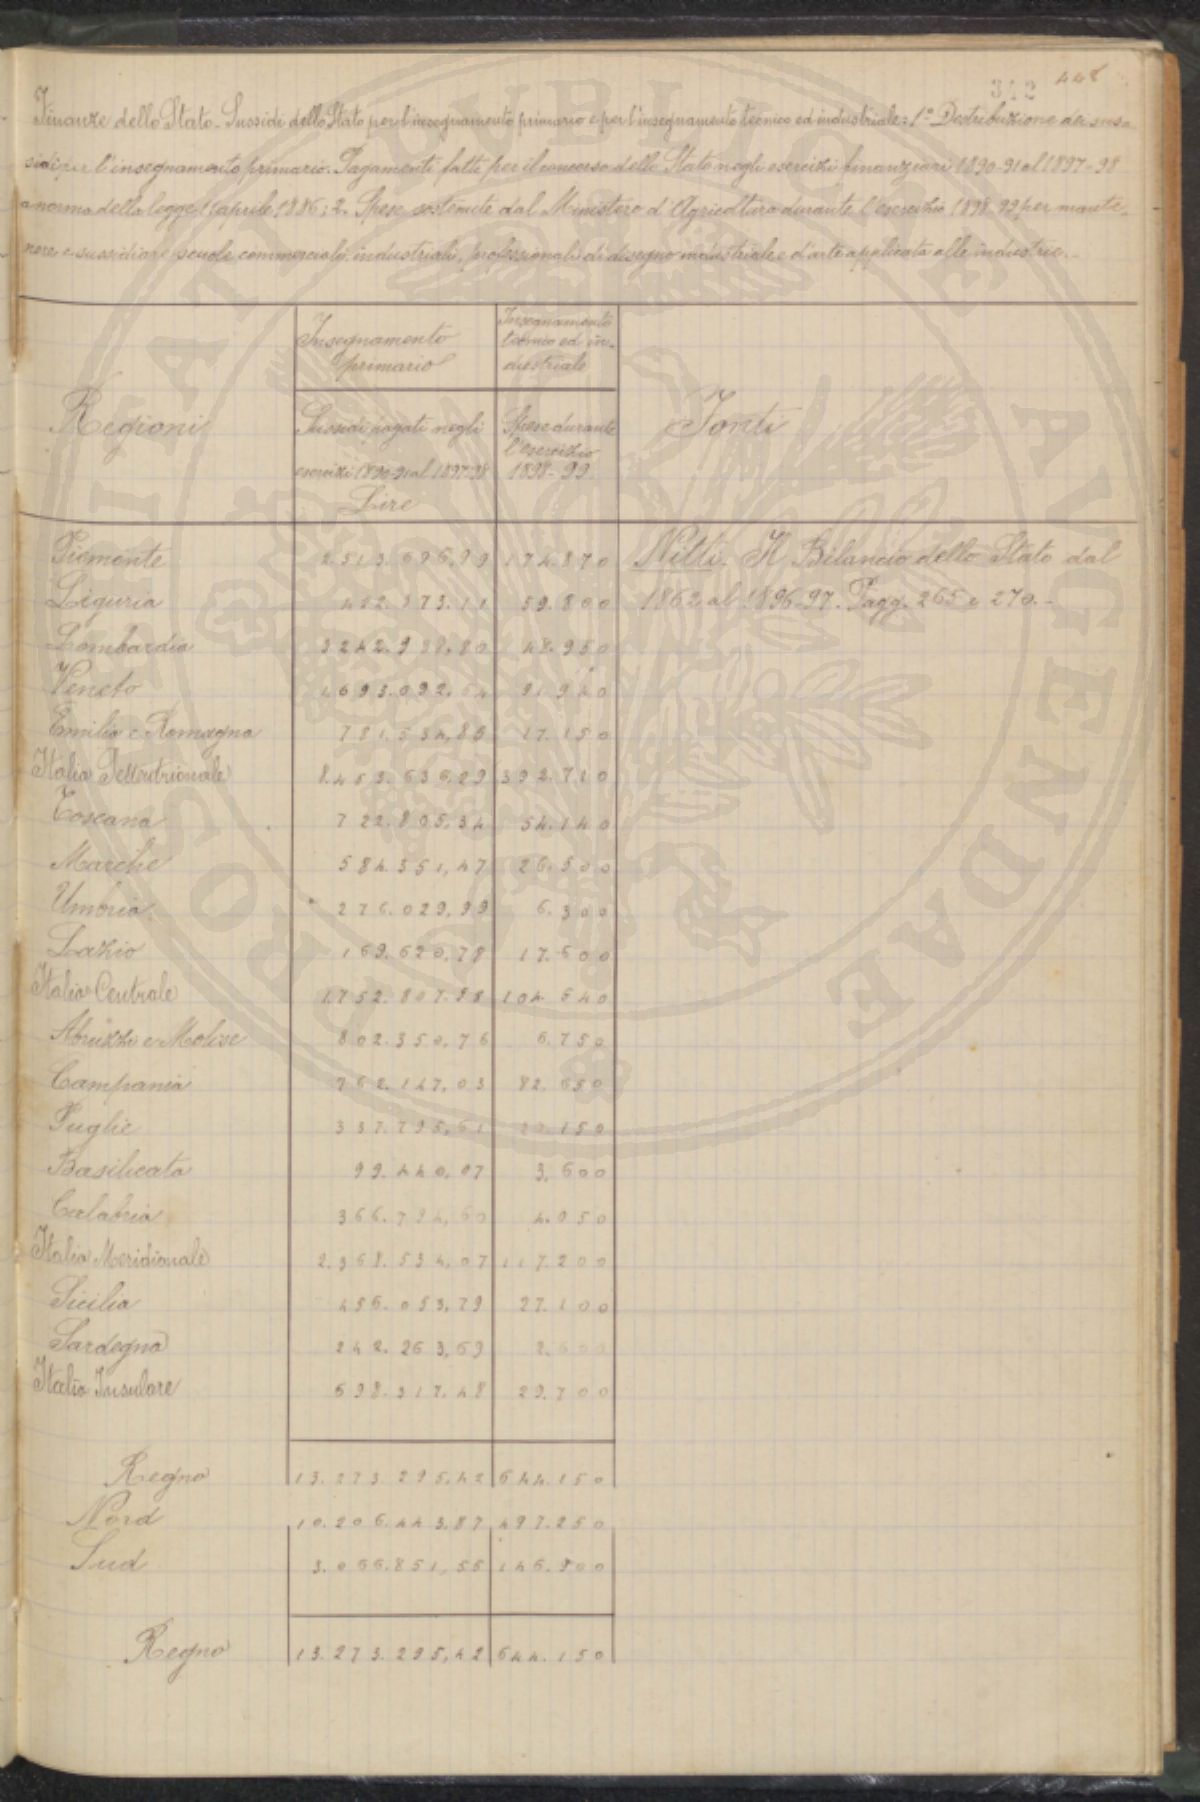 342 448
Finanze dello Stato - Sussidi dello Stato per l'insegnamento primario e per l'insegnamento tecnico ed industriale: 1° Distribuzione dei sus-
sidi per l'insegnamento primario. Pagamenti fatti per il concorso dello Stato negli esercizi finanziari 1890-91 al 1897-98
a norma della legge 11 aprile 1886; 2. Spese sostenute dal Ministero d'Agricoltura durante l'esercizio 1898-99 per mante-
nere e sussidiare scuole commerciali, industriali, professionali di disegno industriale e d'arte applicata alle industrie.
Regioni
Insegnamento primario
Insegnamento tecnico ed in-
dustriale
Fonti
Sussidi pagati negli
esercizi 1890-91 al 1897-98
Lire
Spese durante
l'esercizio
1898-99
Piemonte 2.513.696,99 174.870 Nitti. Il Bilancio dello Stato dal
Liguria 452.373,11 59.800 1862 al 1896-97. Pagg. 265 e 270.-
Lombardia 3242.938,80 48.950
Veneto 1693.092,54 91.940
Emilia e Romagna 781.534,85 17.150
Italia Settentrionale 8.453.636,29 392.710
Toscana 722.805,34 54.140
Marche 584.351,47 26.500
Umbria 276.029,99 6.300
Lazio 169.620,78 17.600
Italia Centrale 1.752.807.58 104.540
Abruzzi e Molise 802.350,76 6.750
Campania 762.147,03 82.650
Puglie 337.795,61 20.150
Basilicata 99.440,07 3,600
Calabria 366.794,60 4.050
Italia Meridionale 2.368.534,07 117.200
Sicilia 456.053,79 27.100
Sardegna 242.263,69 2.600
Italia Insulare 698.317,48 29.700
Regno 13.273.295,42 644.150
Nord 10.206.443,87 497.250
Sud 3.066.851,55 146.900
Regno 13.273.295,42 644.150